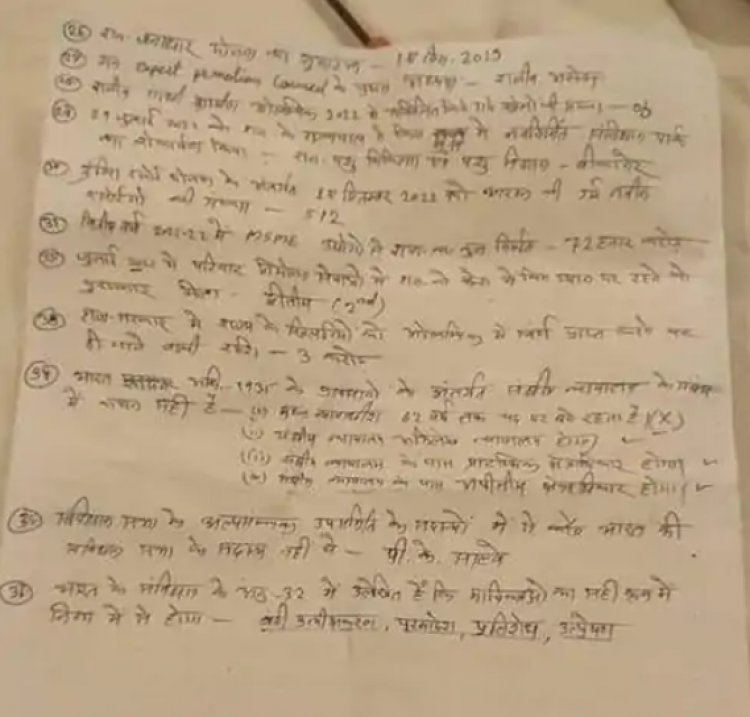 (26) राज. जनाधार योजना का शुभारम्भ - 18 दिस. 2019
(27) राज. Export promotion Council के प्रथम अध्यक्ष - राजीव अरोड़ा
(28) राजीव गांधी ग्रामीण ओलम्पिक 2022 में सम्मिलित किये गये खेलों की संख्या - 06
(29) को राज. के राज्यपाल ने किस में नवनिर्मित संविधान पार्क
का लोकार्पण किया - राज. पशु चिकित्सा एवं पशु विज्ञान - बीकानेर
(30) इंदिरा रसोई योजना के अंतर्गत 18 सितम्बर 2022 को प्रारम्भ की गई नवीन
रसोईयों की संख्या - 512
(31) वित्तीय वर्ष 2021-22 में MSME उद्योगों से राज. का कुल निर्यात - 72 हजार करोड़
जुलाई में परिवार नियोजन सेवाओं में राज. को देश के किस स्थान पर रहने का
पुरस्कार मिला - द्वितीय (2nd)
राज. सरकार ने राज्य के खिलाड़ियों को ओलम्पिक में स्वर्ण प्राप्त करने पर
दी जाने वाली राशि - 3 करोड़
(34) भारत अधि. - 1935 के प्रावधानों के अंतर्गत संघीय न्यायालय के संबंध
में कथन नहीं है - (i) मुख्य न्यायाधीश 62 वर्ष तक पद पर बने रहता है (X)
(ii) संघीय न्यायालय अभिलेख न्यायालय होगा ✓
(iii) संघीय न्यायालय के पास प्रारम्भिक क्षेत्राधिकार होगा ✓
संघीय न्यायालय के पास अपीलीय क्षेत्राधिकार होगा ✓
(35) संविधान सभा के अल्पसंख्यक उपसमिति के सदस्यों में से कौन भारत की
संविधान सभा के सदस्य नहीं थे - पी. के. साल्वे
(36) भारत के संविधान के अनु. 32 में उल्लेखित है कि याचिकाओं का सही क्रम में
निम्न में से होगा - बंदी प्रत्यक्षीकरण, परमादेश, प्रतिषेध, उत्प्रेषण